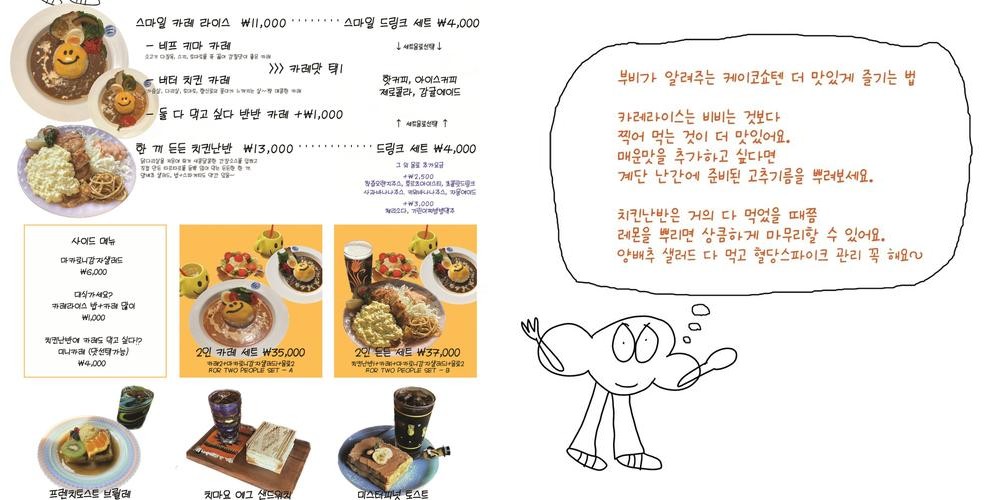 스마일 카레 라이스 ₩11,000 ········ 스마일 드링크 세트 ₩4,000
- 비프 키마 카레
↓ 세트음료선택 ↓
>>> 카레맛 택1
- 버터 치킨 카레
핫커피, 아이스커피
제로콜라, 감귤에이드
- 둘 다 먹고 싶다 반반 카레 +₩1,000
↑ 세트음료선택 ↑
한 끼 든든 치킨난반 ₩13,000 ············ 드링크 세트 ₩4,000
그 외 음료 추가요금
+₩2,500
+₩3,000
사이드 메뉴
마카로니감자샐러드
₩6,000
대식가세요?
카레라이스 밥+카레 많이
₩1,000
치킨난반에 카레도 먹고 싶다!?
미니카레 (맛선택가능)
₩4,000
2인 카레 세트 ₩35,000
카레2+마카로니감자샐러드+음료2
FOR TWO PEOPLE SET - A
2인 든든 세트 ₩37,000
치킨난반1+카레1+마카로니감자샐러드+음료2
FOR TWO PEOPLE SET - B
프렌치토스트 브륄레
치마요 에그 샌드위치
미스터피넛 토스트
부비가 알려주는 케이코쇼텐 더 맛있게 즐기는 법
카레라이스는 비비는 것보다
찍어 먹는 것이 더 맛있어요.
매운맛을 추가하고 싶다면
계단 난간에 준비된 고추기름을 뿌려보세요.
치킨난반은 거의 다 먹었을 때쯤
레몬을 뿌리면 상큼하게 마무리할 수 있어요.
양배추 샐러드 다 먹고 혈당스파이크 관리 꼭 해요~